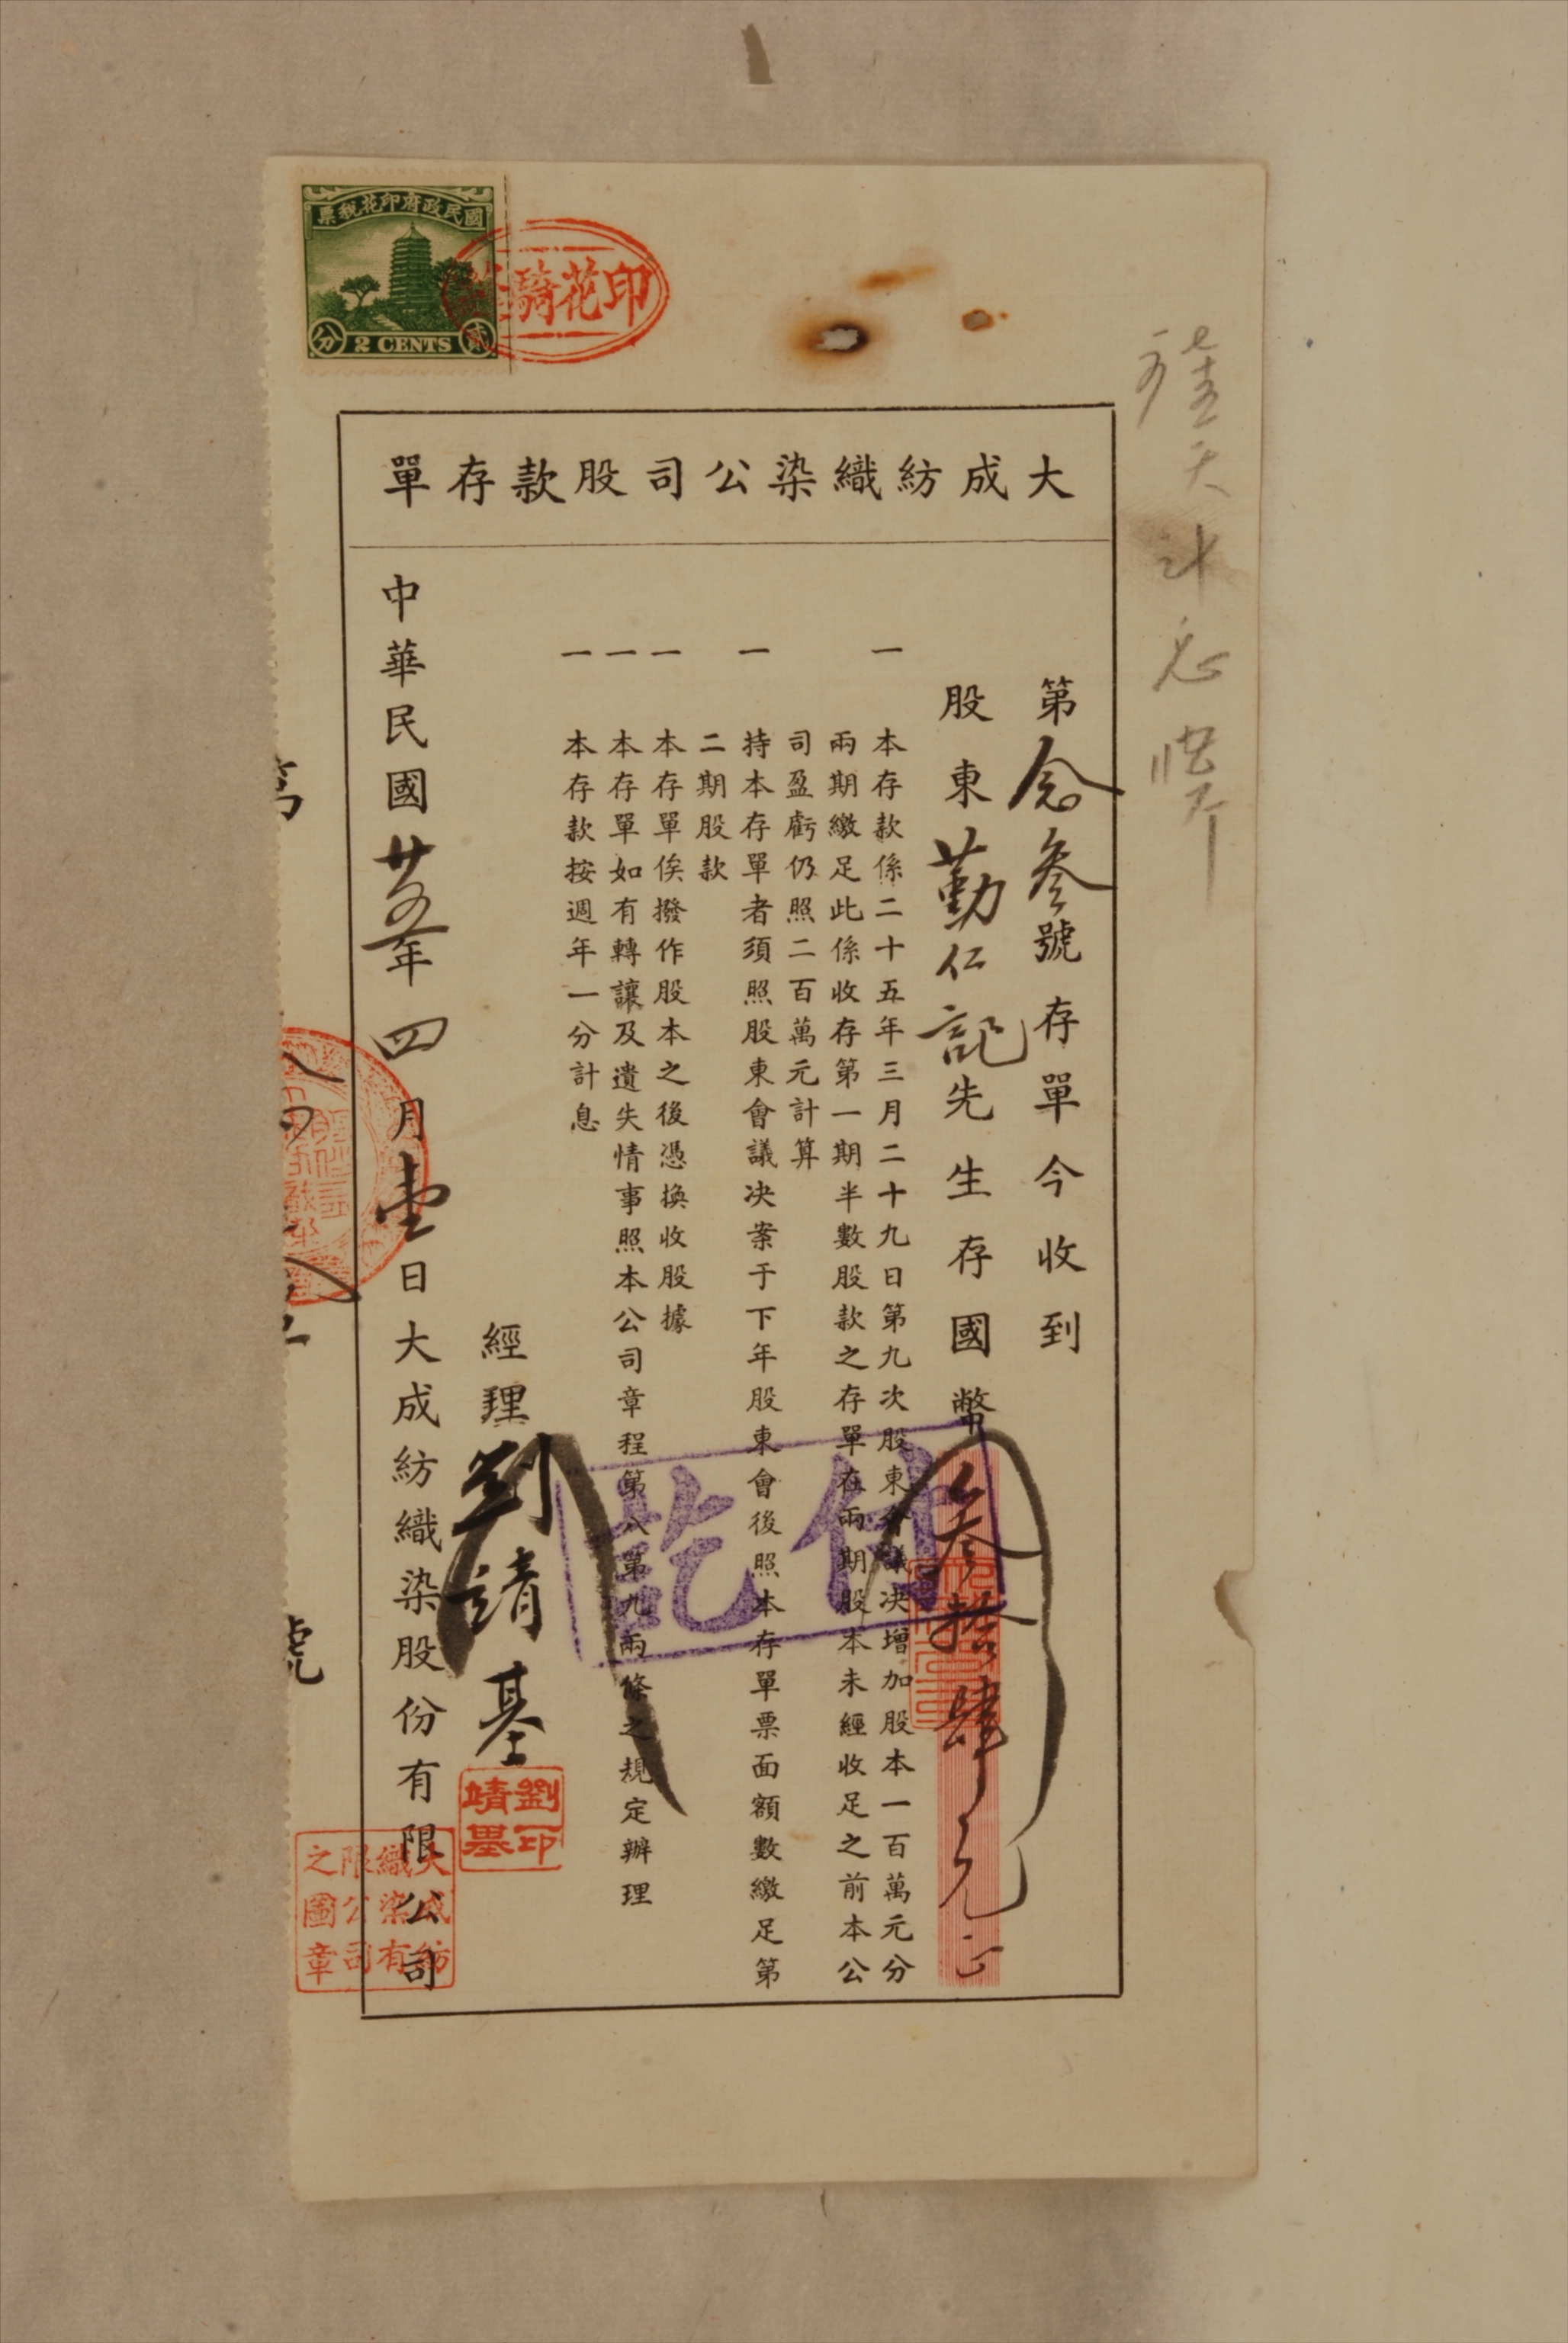 國民政府印花稅票
貳
2 CENTS
分
印花騎
大成紡織染公司股款存單
第念叁號存單今收到
股東勤仁記先生存國幣叁拾肆元正
一 本存款係二十五年三月二十九日第九次股東會議决增加股本一百萬元分
兩期繳足此係收存第一期半數股款之存單在兩期股本未經收足之前本公
司盈虧仍照二百萬元計算
一 持本存單者須照股東會議决案于下年股東會後照本存單票面額數繳足第
二期股款
一 本存單俟撥作股本之後憑換收股據
一 本存單如有轉讓及遺失情事照本公司章程第八第九兩條之規定辦理
一 本存款按週年一分計息
付訖
經理劉靖基
劉印靖基
中華民國廿五年四月壹日大成紡織染股份有限公司
大成紡織染有限公司之圖章
號